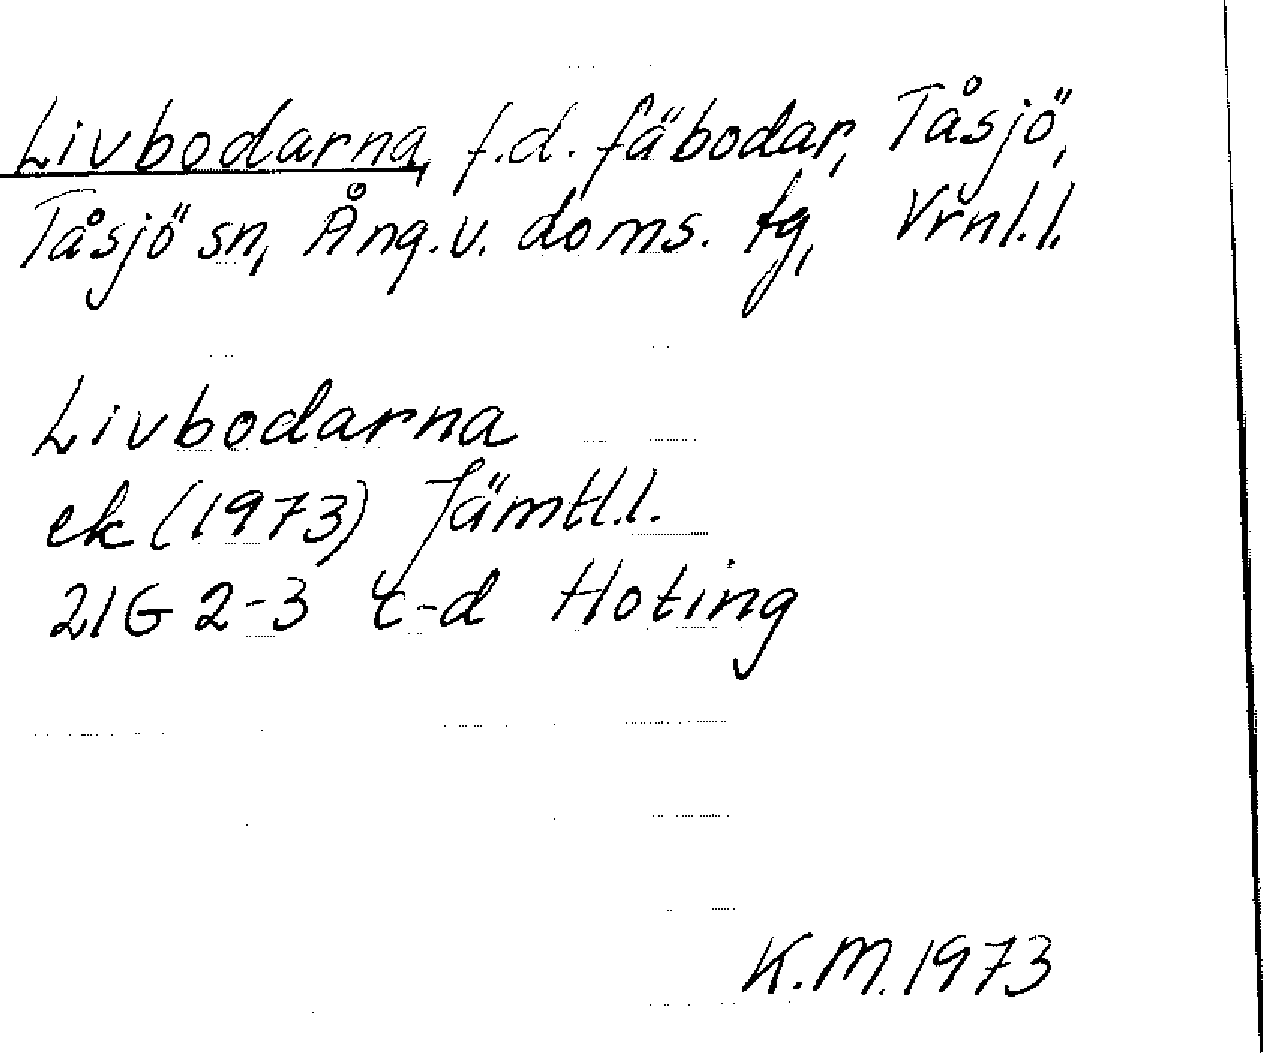 Livbodarna, f.d. fäbodar, Tåsjö,
Tåsjö sn, Ång.v. doms. tg, Vrnl.l.
Livbodarna
ek (1973) Jämtl.l.
21G 2-3 c-d Hoting
K.M. 1973